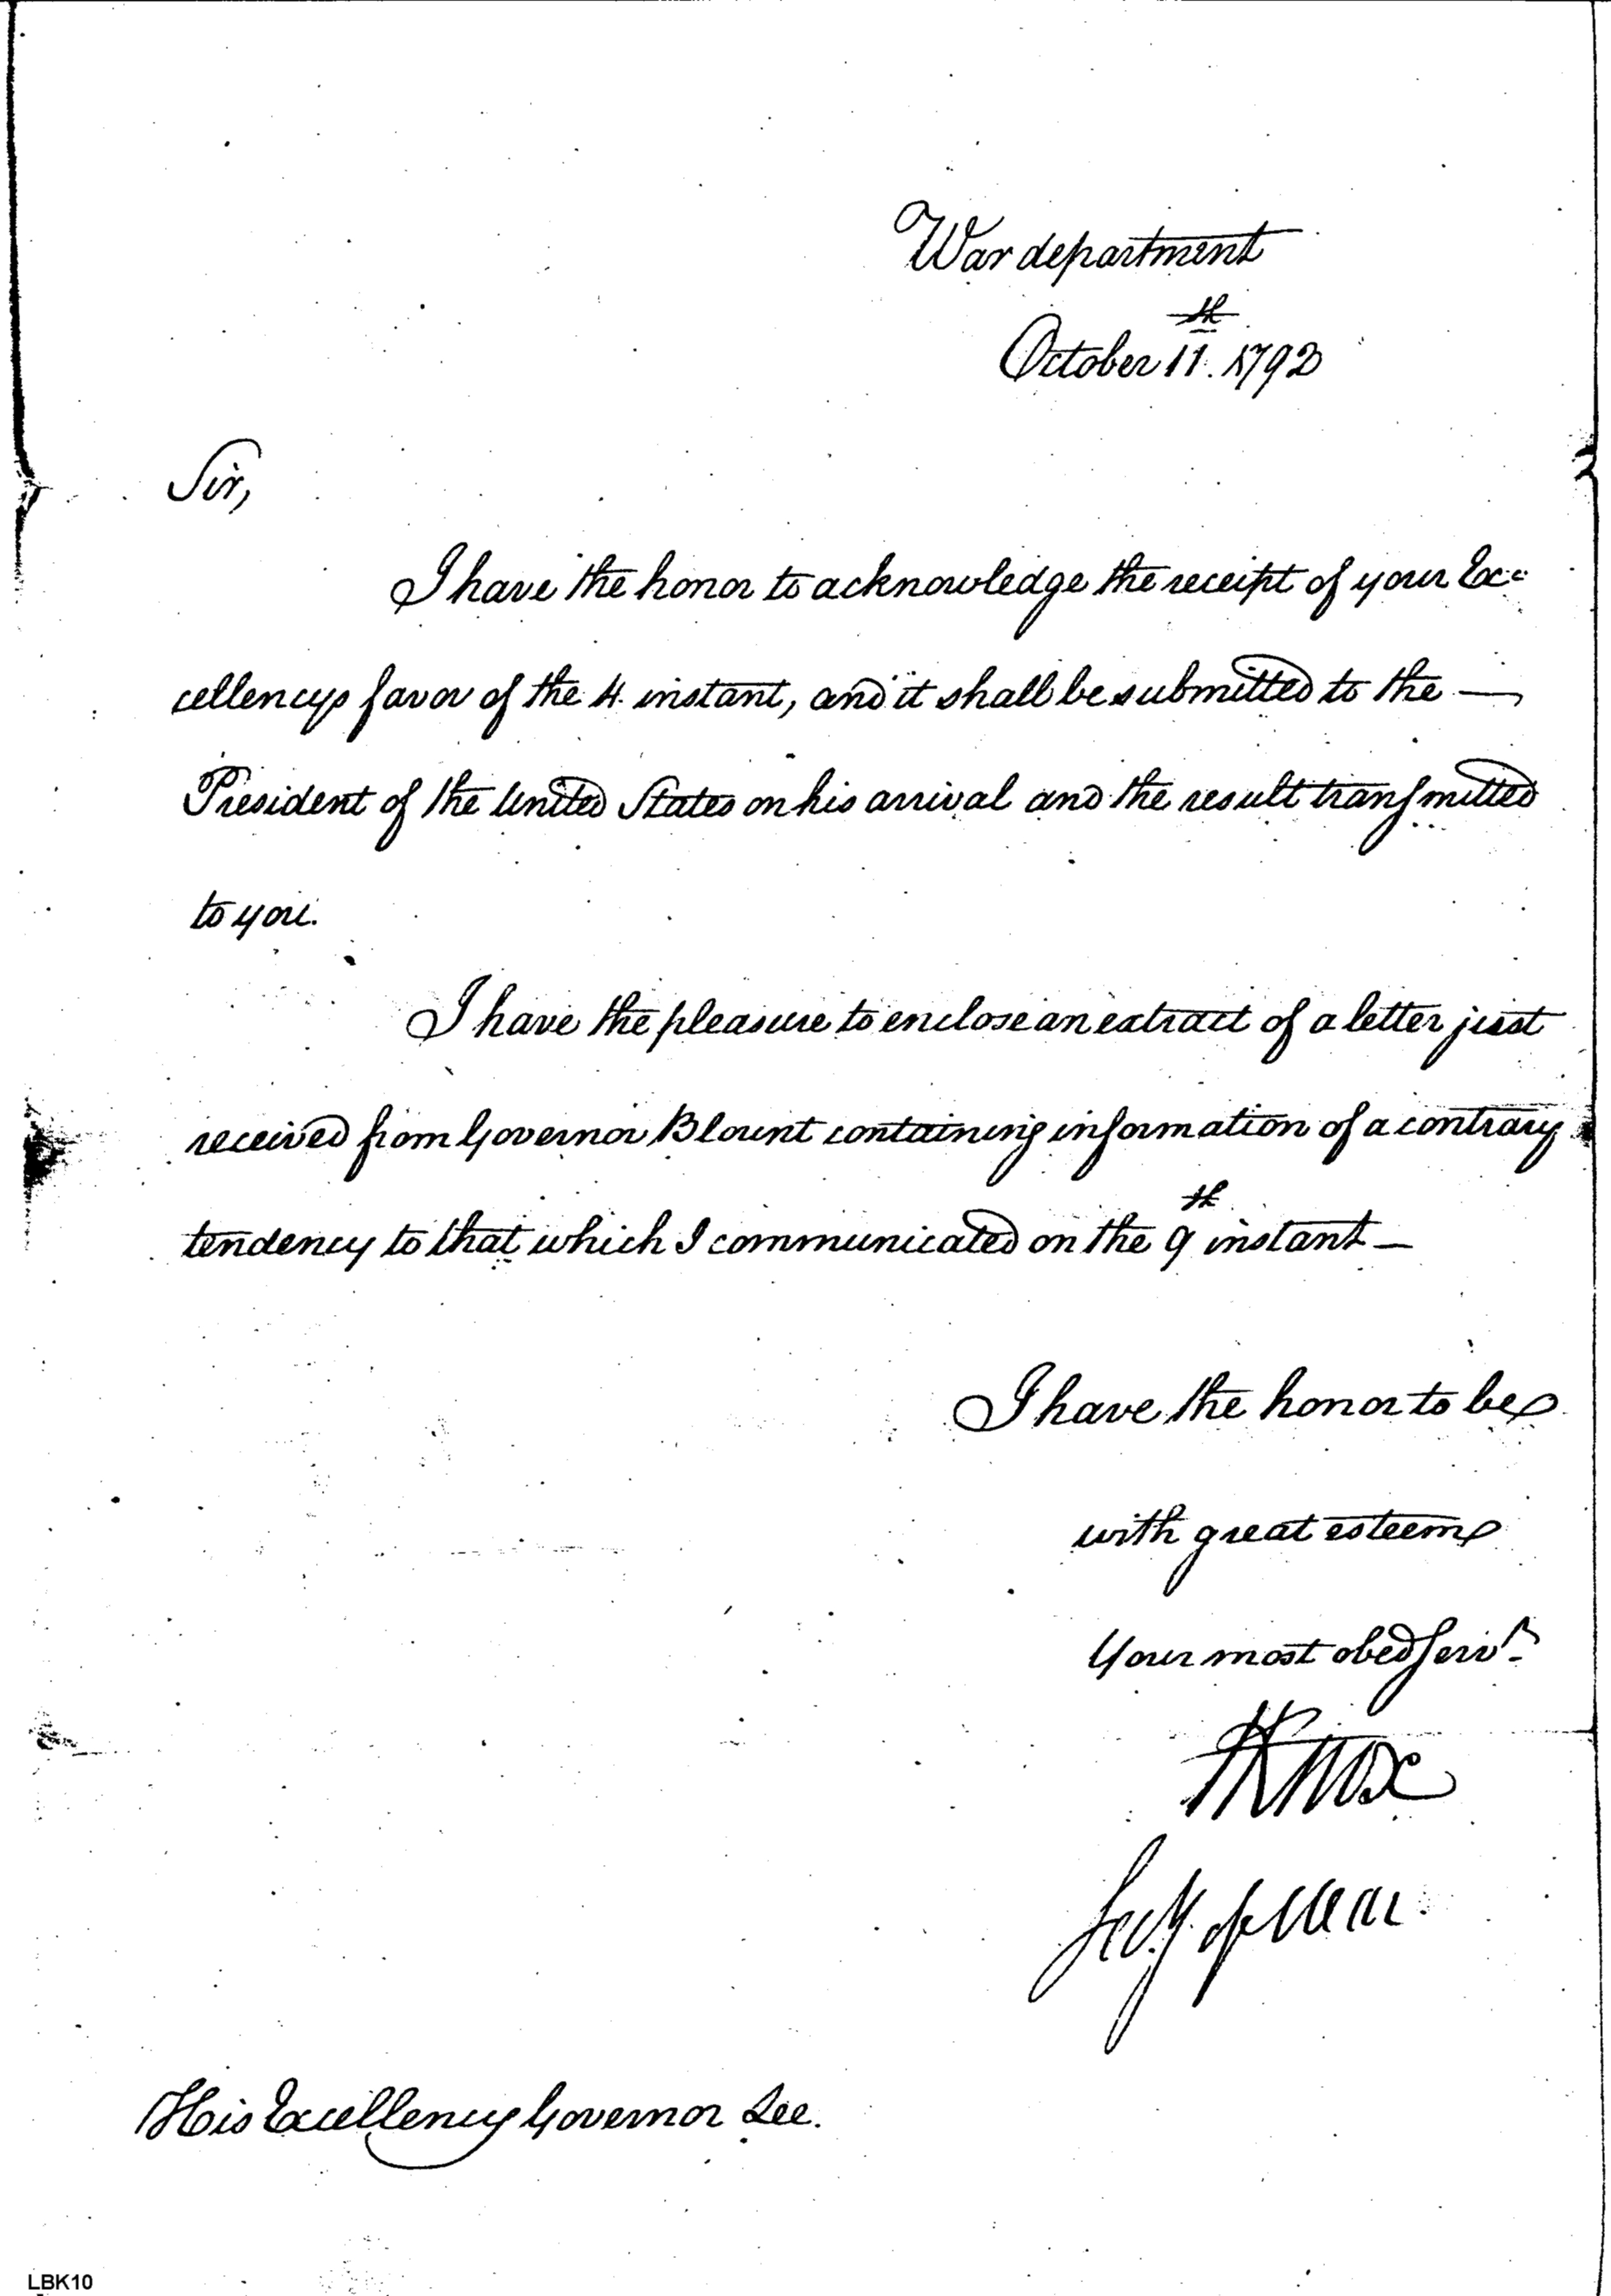 War department
October 11th. 1792
Sir,
I have the honor to acknowledge the receipt of your Ex=
cellencys favor of the 4 instant, and it shall be submitted to the —
President of the United States on his arrival and the result transmitted
to you.
I have the pleasure to enclose an extract of a letter just
received from Governor Blount containing information of a contrary
tendency to that which I communicated on the 9th instant —
I have the honor to be
with great esteem
Your most obed Servt
HKnox
Secy of War
His Excellency Governor Lee.
LBK10